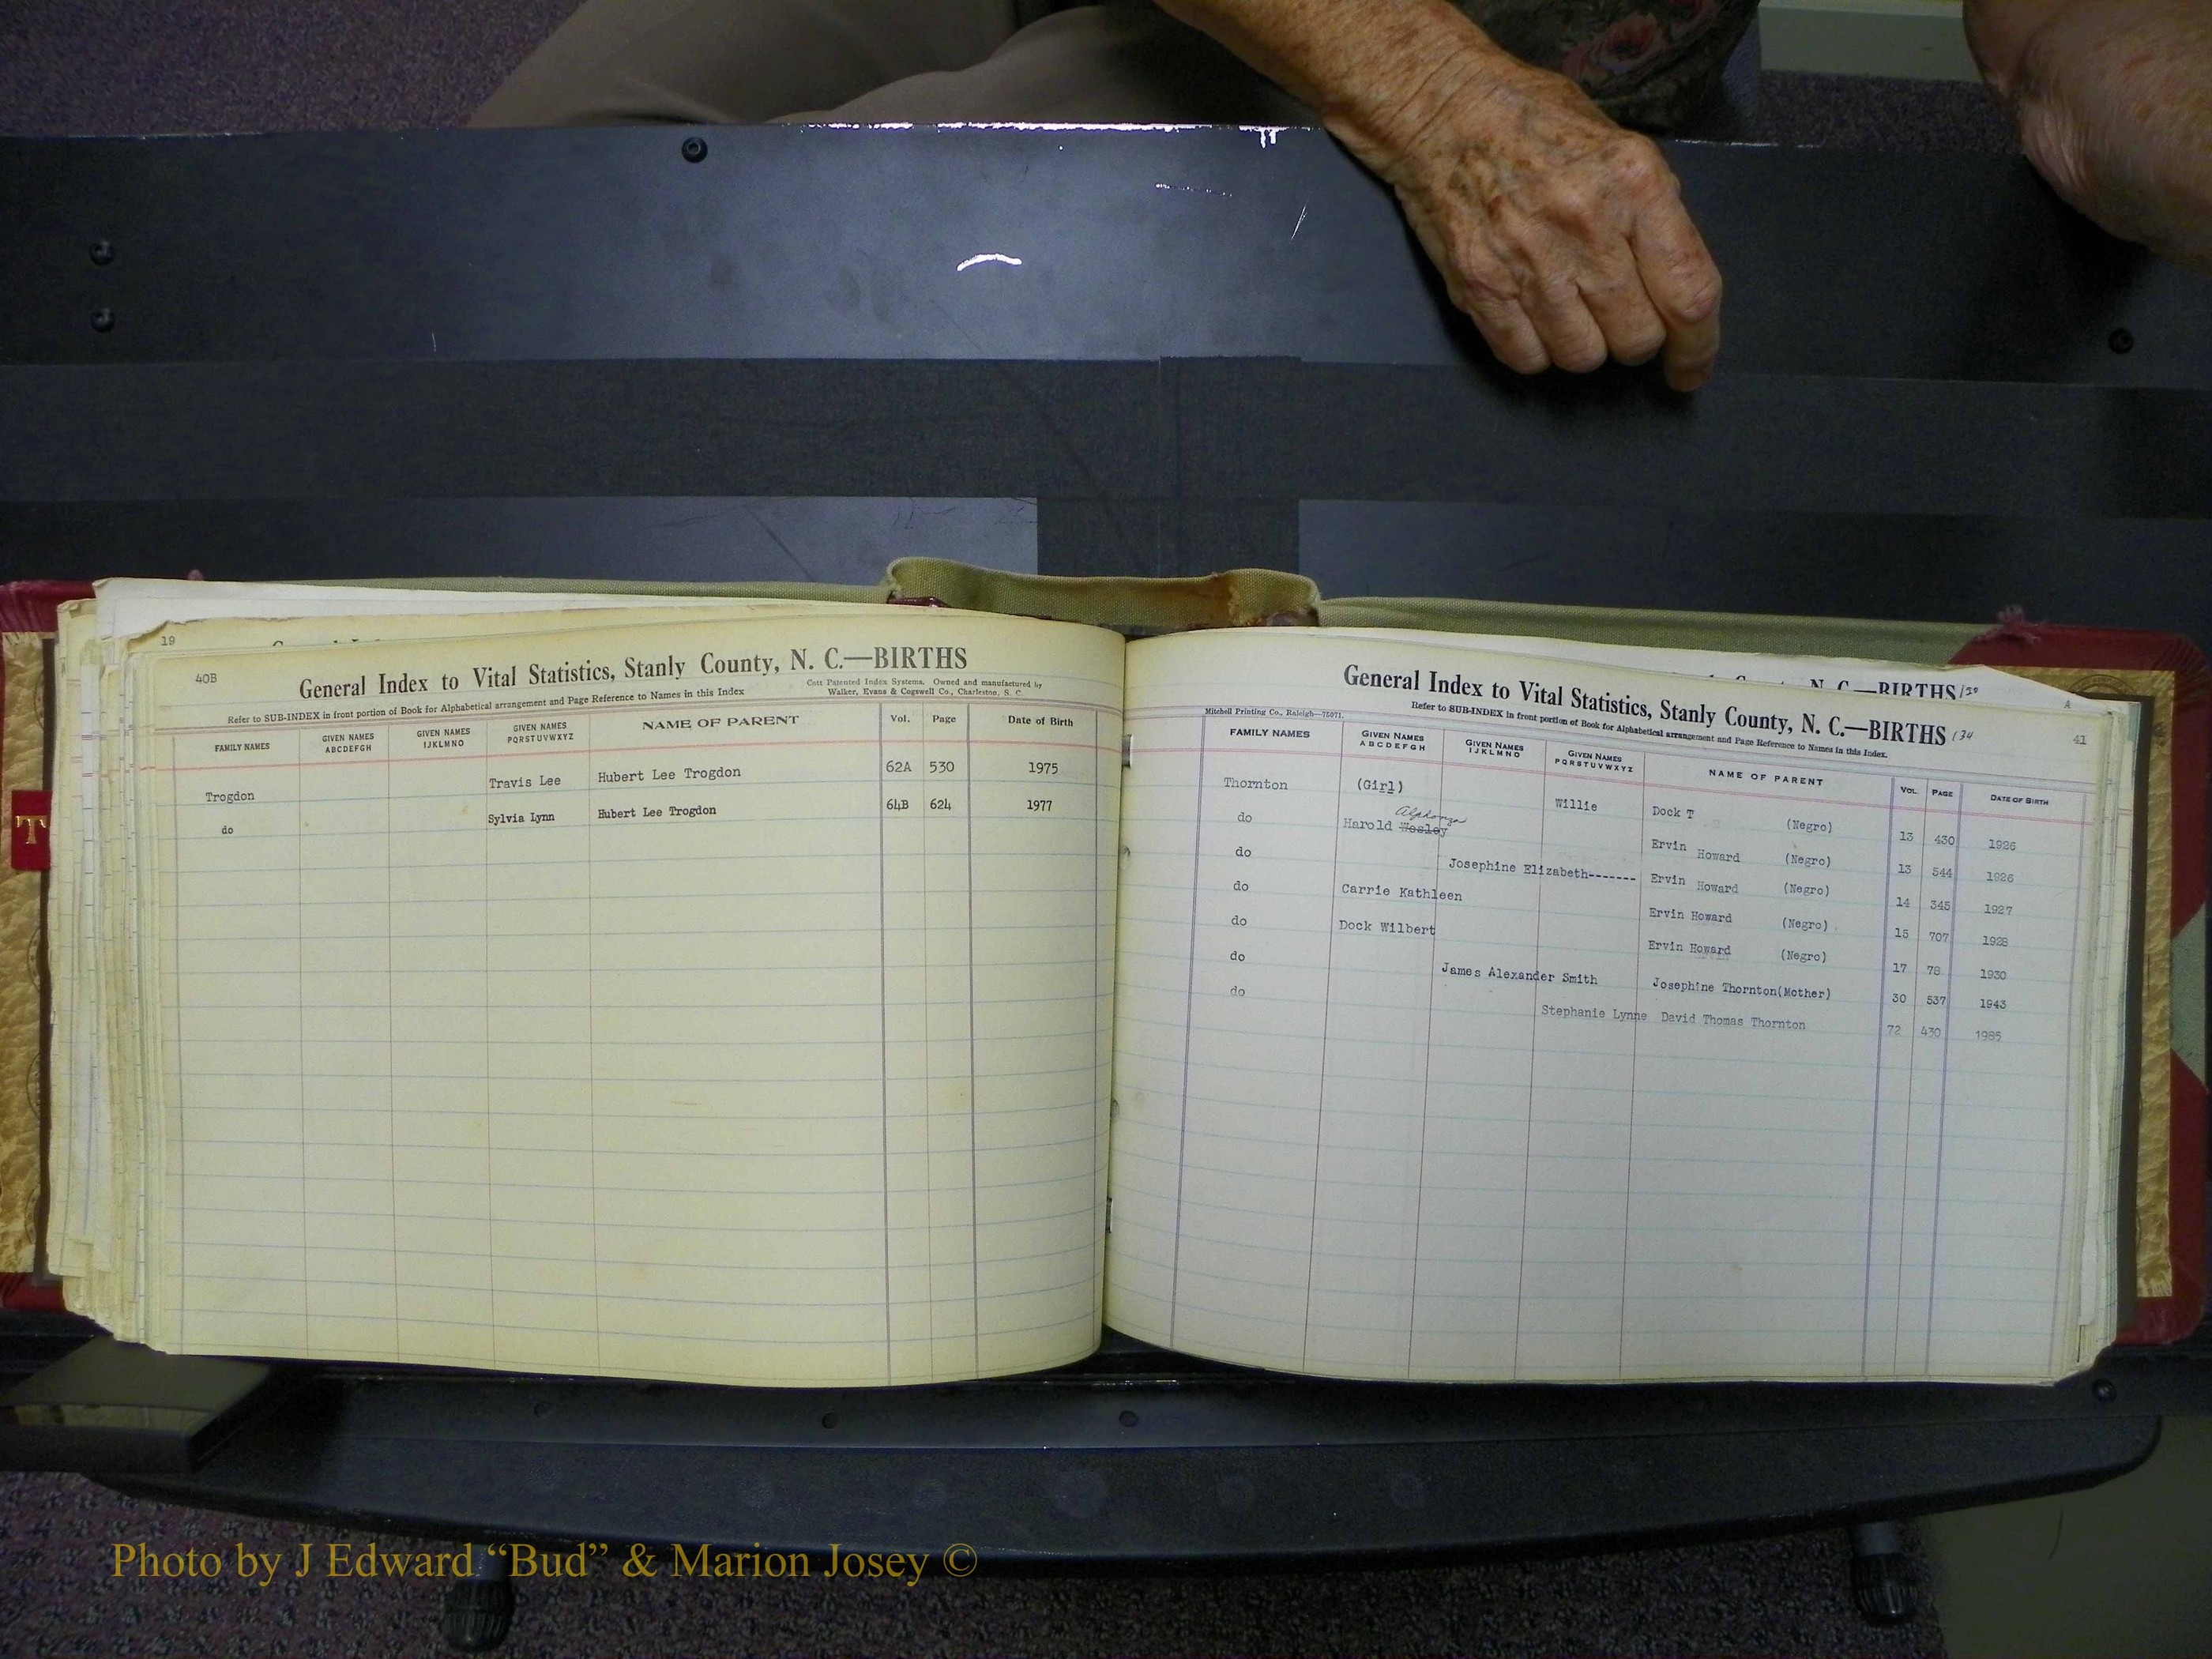 19
40B
General Index to Vital Statistics, Stanly County, N. C.—BIRTHS
Refer to SUB-INDEX in front portion of Book for Alphabetical arrangement and Page Reference to Names in this Index
Cott Patented Index Systems. Owned and manufactured by
Walker, Evans & Cogswell Co., Charleston, S. C.
FAMILY NAMES GIVEN NAMES ABCDEFGH GIVEN NAMES IJKLMNO GIVEN NAMES PQRSTUVWXYZ NAME OF PARENT Vol. Page Date of Birth
Trogdon Travis Lee Hubert Lee Trogdon 62A 530 1975
do Sylvia Lynn Hubert Lee Trogdon 64B 624 1977
T
N. C.—BIRTHS
A
General Index to Vital Statistics, Stanly County, N. C.—BIRTHS 134
41
Mitchell Printing Co., Raleigh—75071.
Refer to SUB-INDEX in front portion of Book for Alphabetical arrangement and Page Reference to Names in this Index.
FAMILY NAMES GIVEN NAMES ABCDEFGH GIVEN NAMES IJKLMNO GIVEN NAMES PQRSTUVWXYZ NAME OF PARENT VOL. PAGE DATE OF BIRTH
Thornton (Girl) Willie Dock T (Negro) 13 430 1926
Alphonza
do Harold Wesley Ervin Howard (Negro) 13 544 1926
do Josephine Elizabeth------- Ervin Howard (Negro) 14 345 1927
do Carrie Kathleen Ervin Howard (Negro) 15 707 1928
do Dock Wilbert Ervin Howard (Negro) 17 78 1930
do James Alexander Smith Josephine Thornton(Mother) 30 537 1943
do Stephanie Lynne David Thomas Thornton 72 430 1985
Photo by J Edward “Bud” & Marion Josey ©